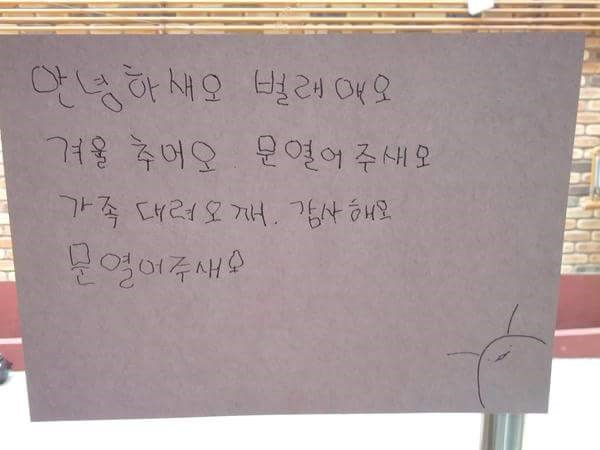 안녕하새오 벌래애오
겨울 추어오 문열어주새오
가족 대려오재. 감사해오
문열어주새오